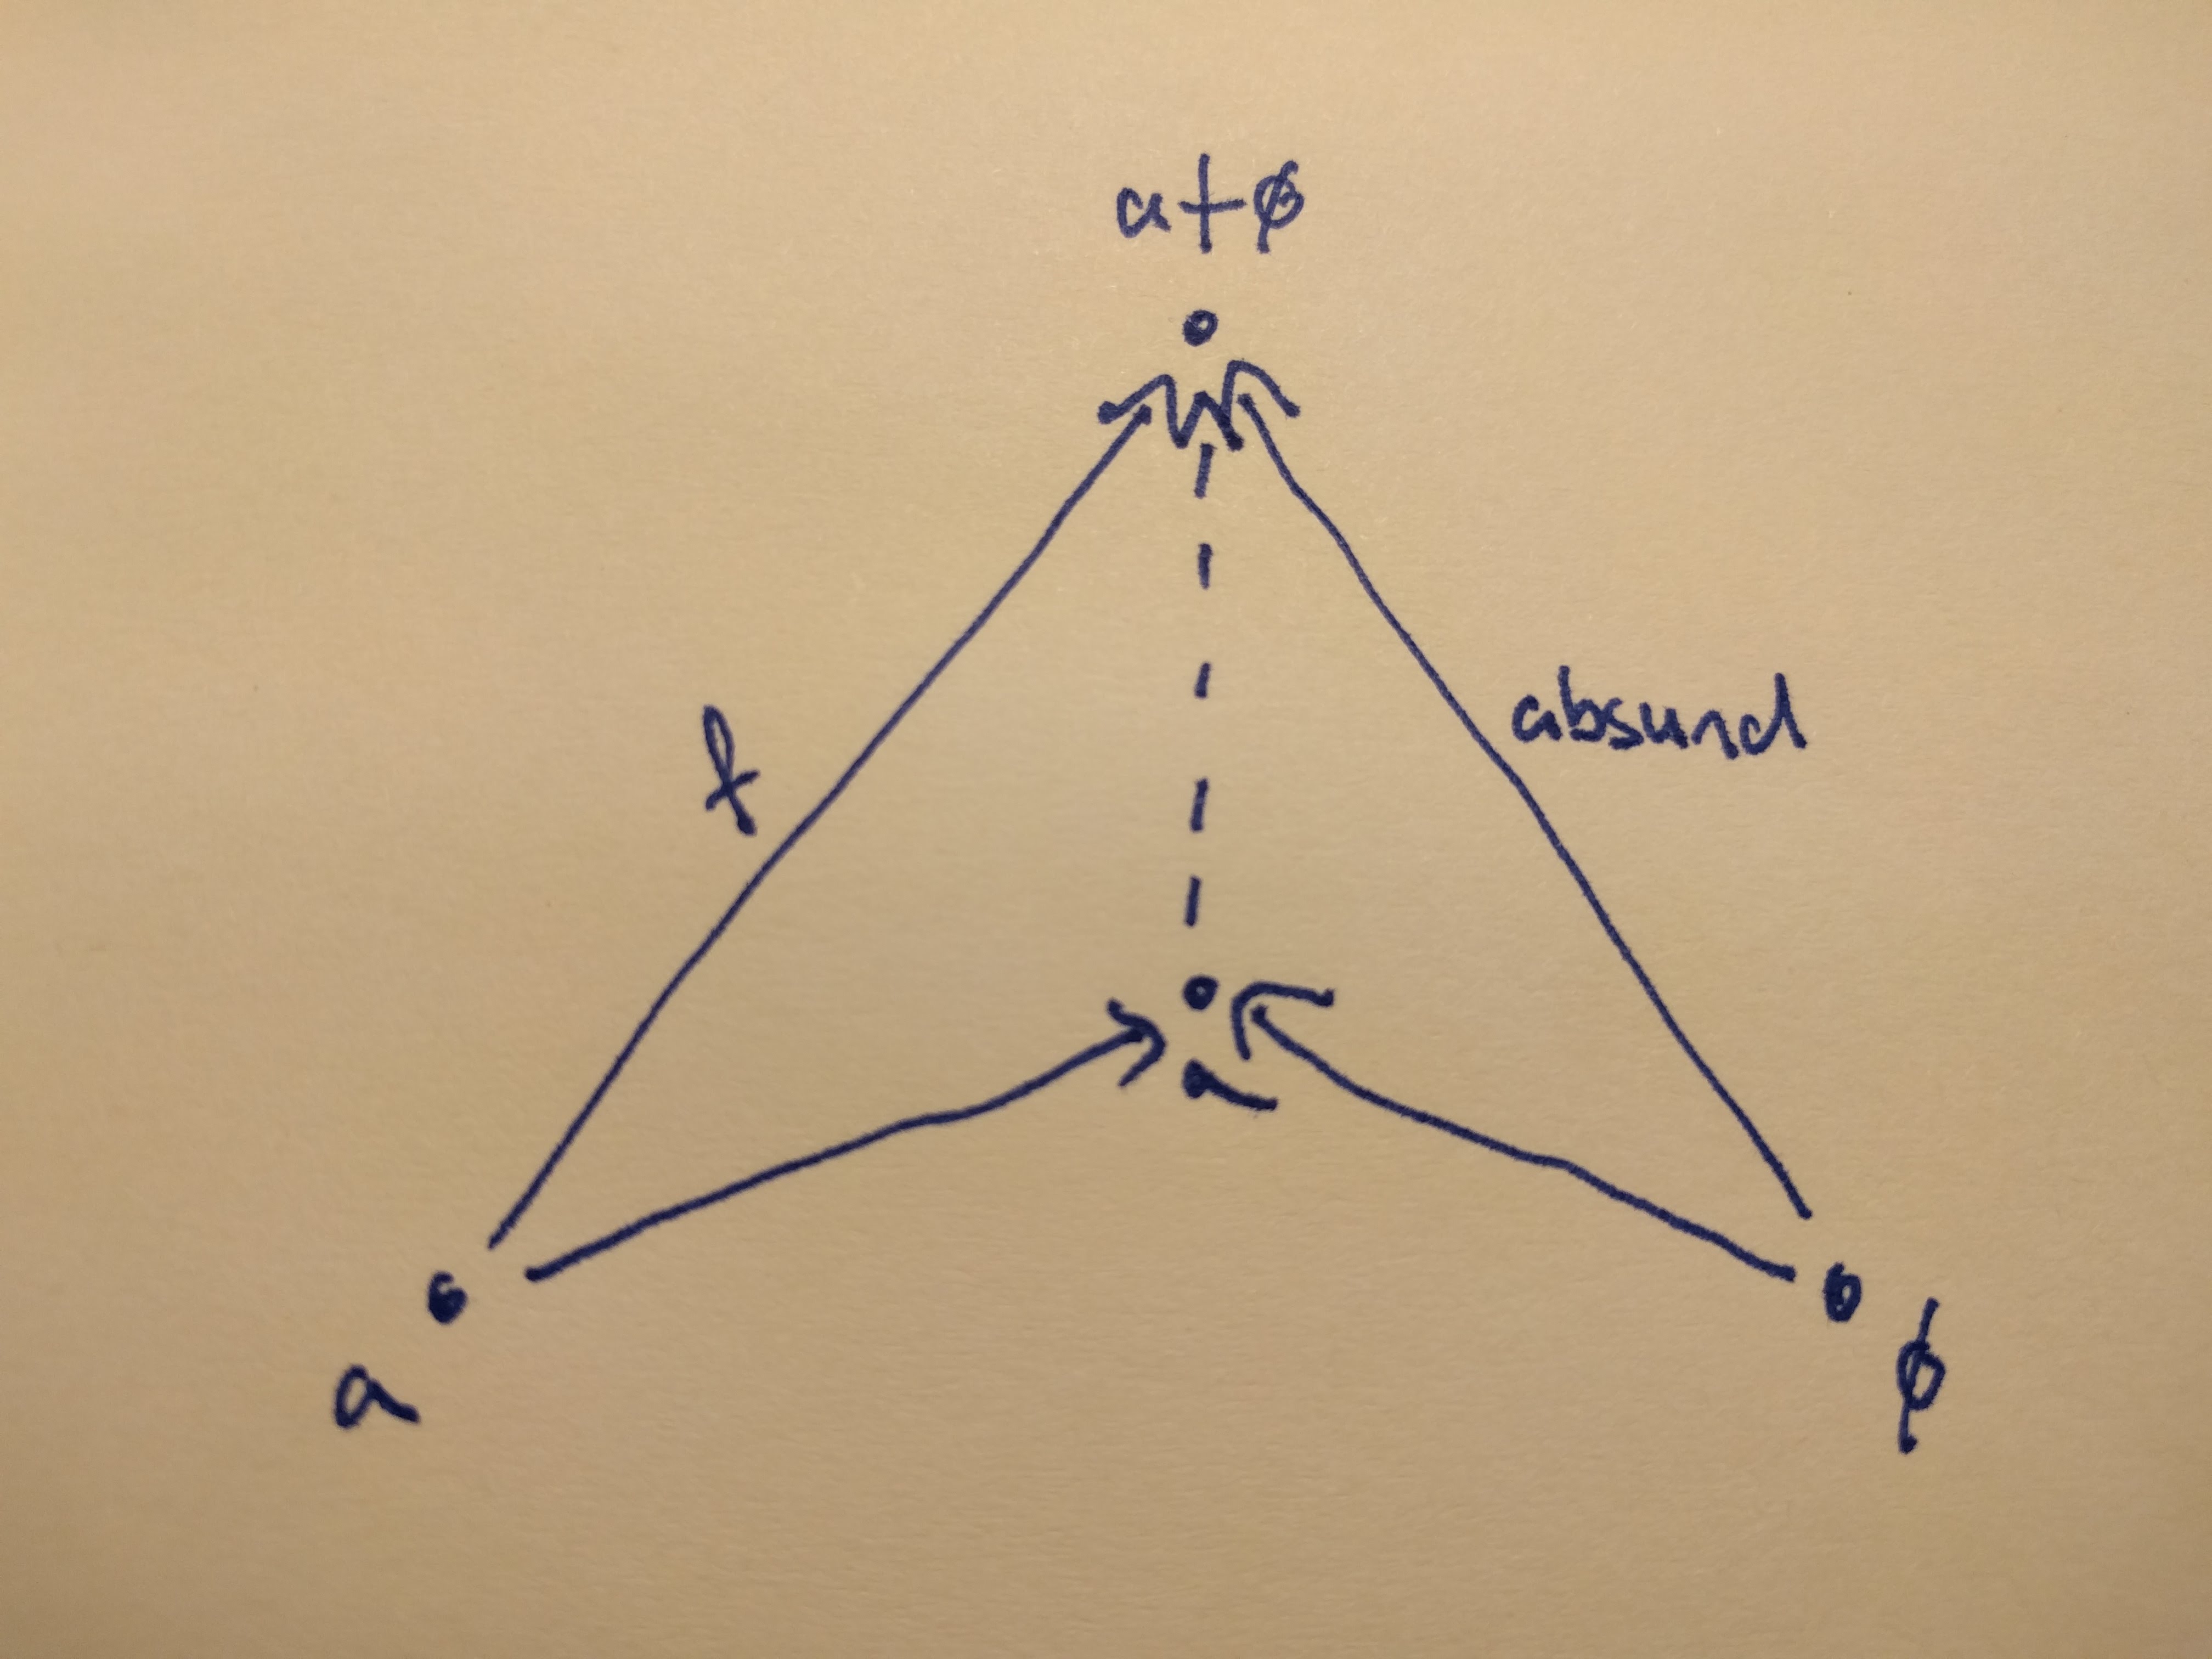 a+ϕ
f
absurd
a
a
ϕ